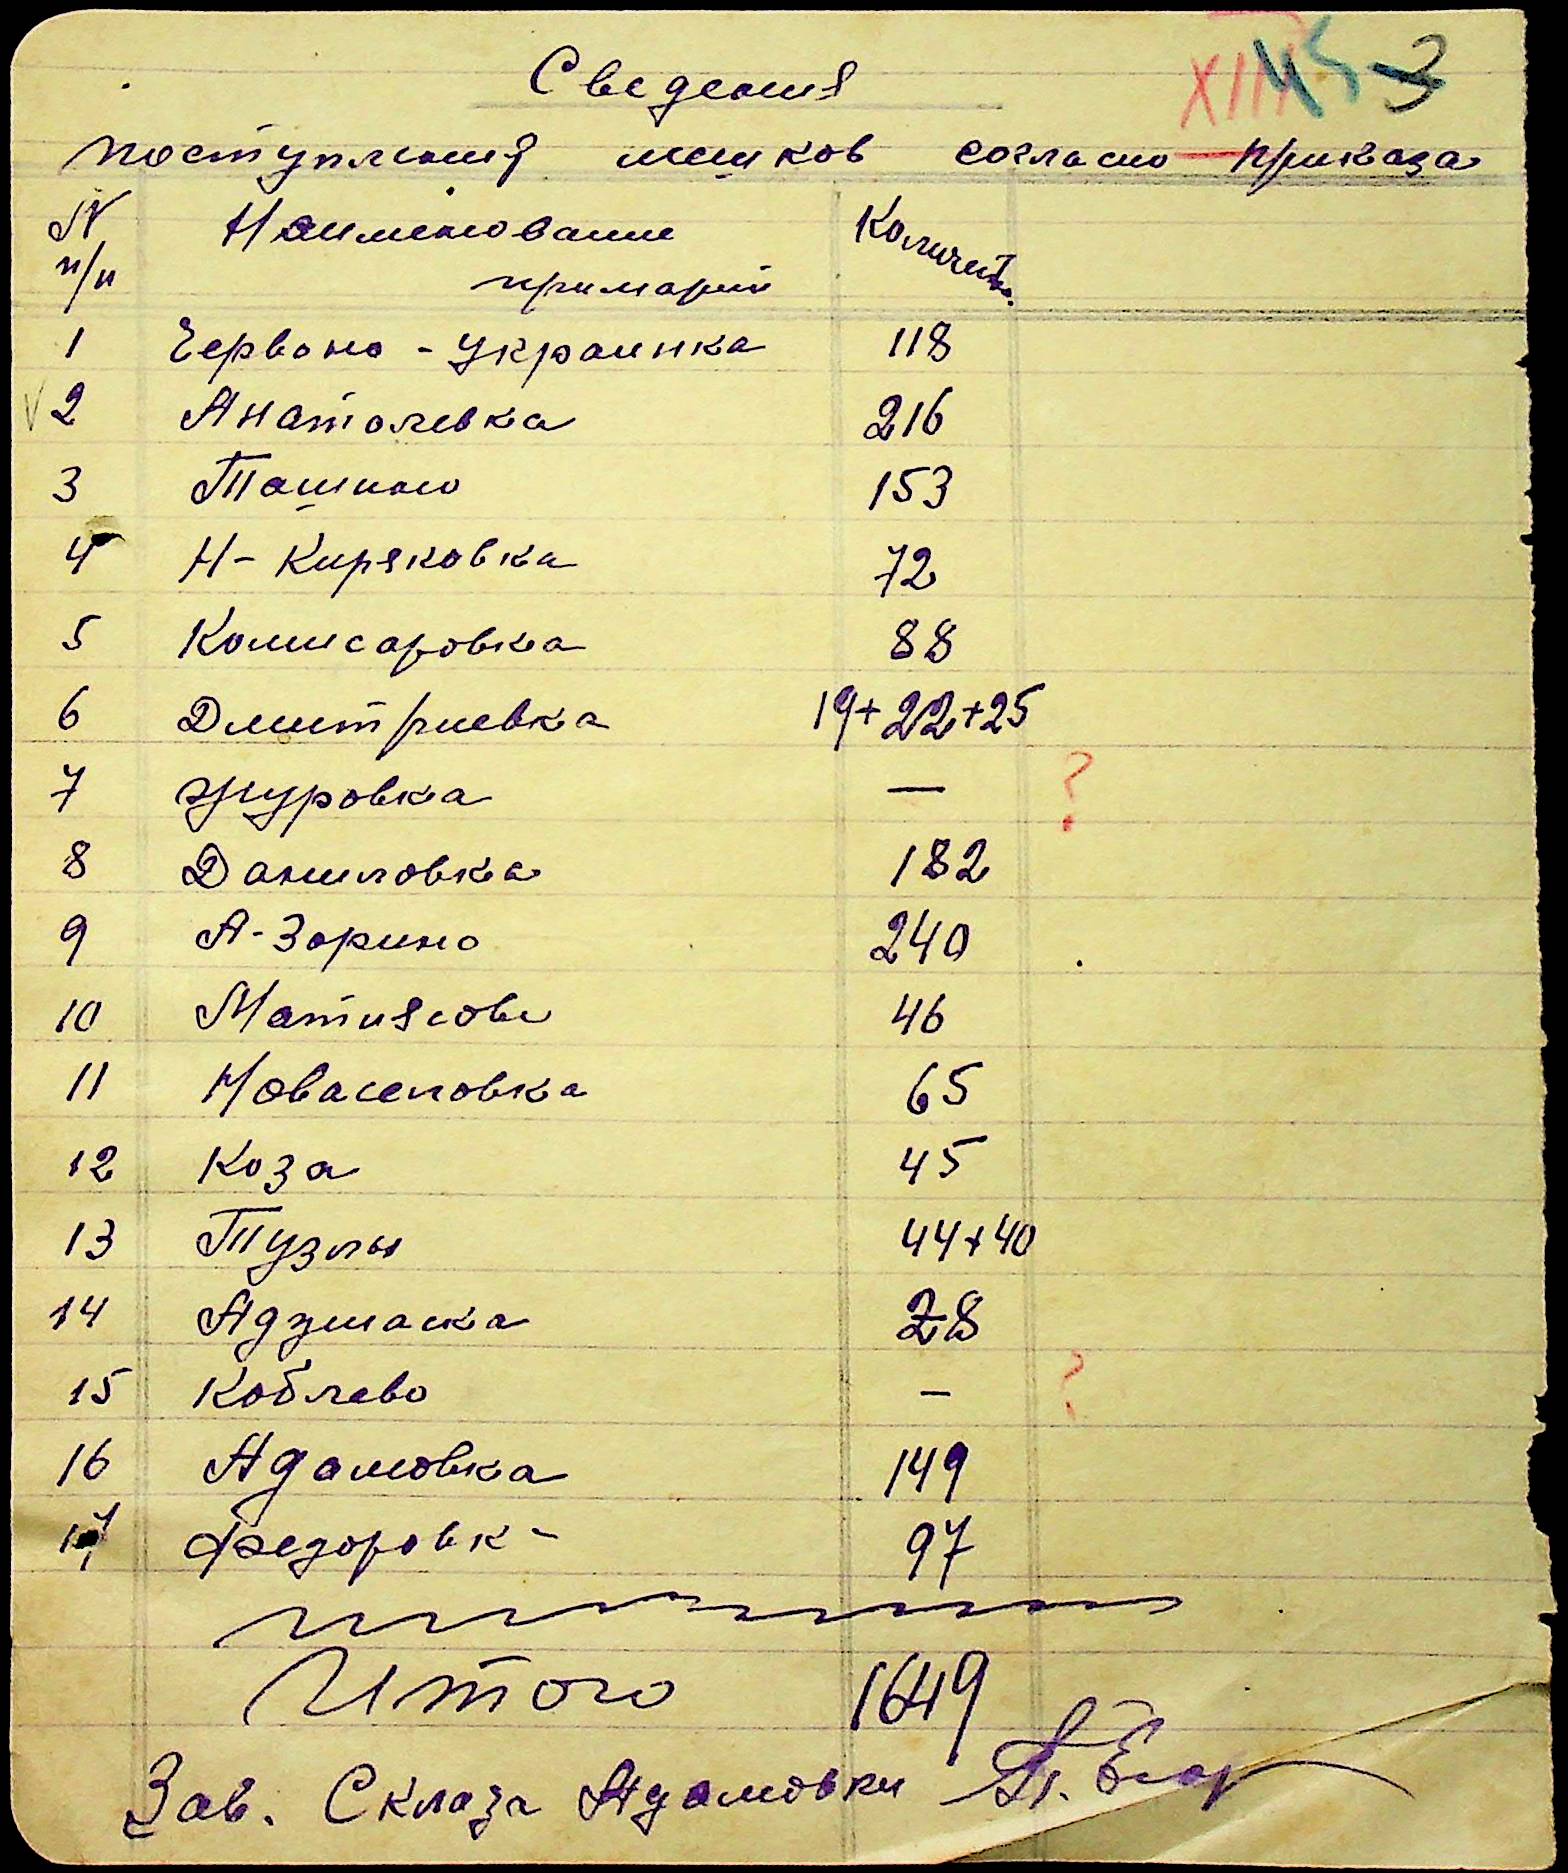 Сведения
поступления мешков согласно приказа
N п/п Наименование примарий Количеств.
1 Червоно-Украинка 118
2 Анатолевка 216
3 Ташино 153
4 Н-Киряковка 72
5 Комисаровка 88
6 Дмитриевка 19+22+25
7 Журовка — ?
8 Даниловка 182
9 А-Зорино 240
10 Матиясове 46
11 Новаселовка 65
12 Коза 45
13 Тузлы 44+40
14 Аджиаска 28
15 Коблево — ?
16 Адамовка 149
17 Федоровк-
97
Итого 1649
Зав. Склада Адамовки